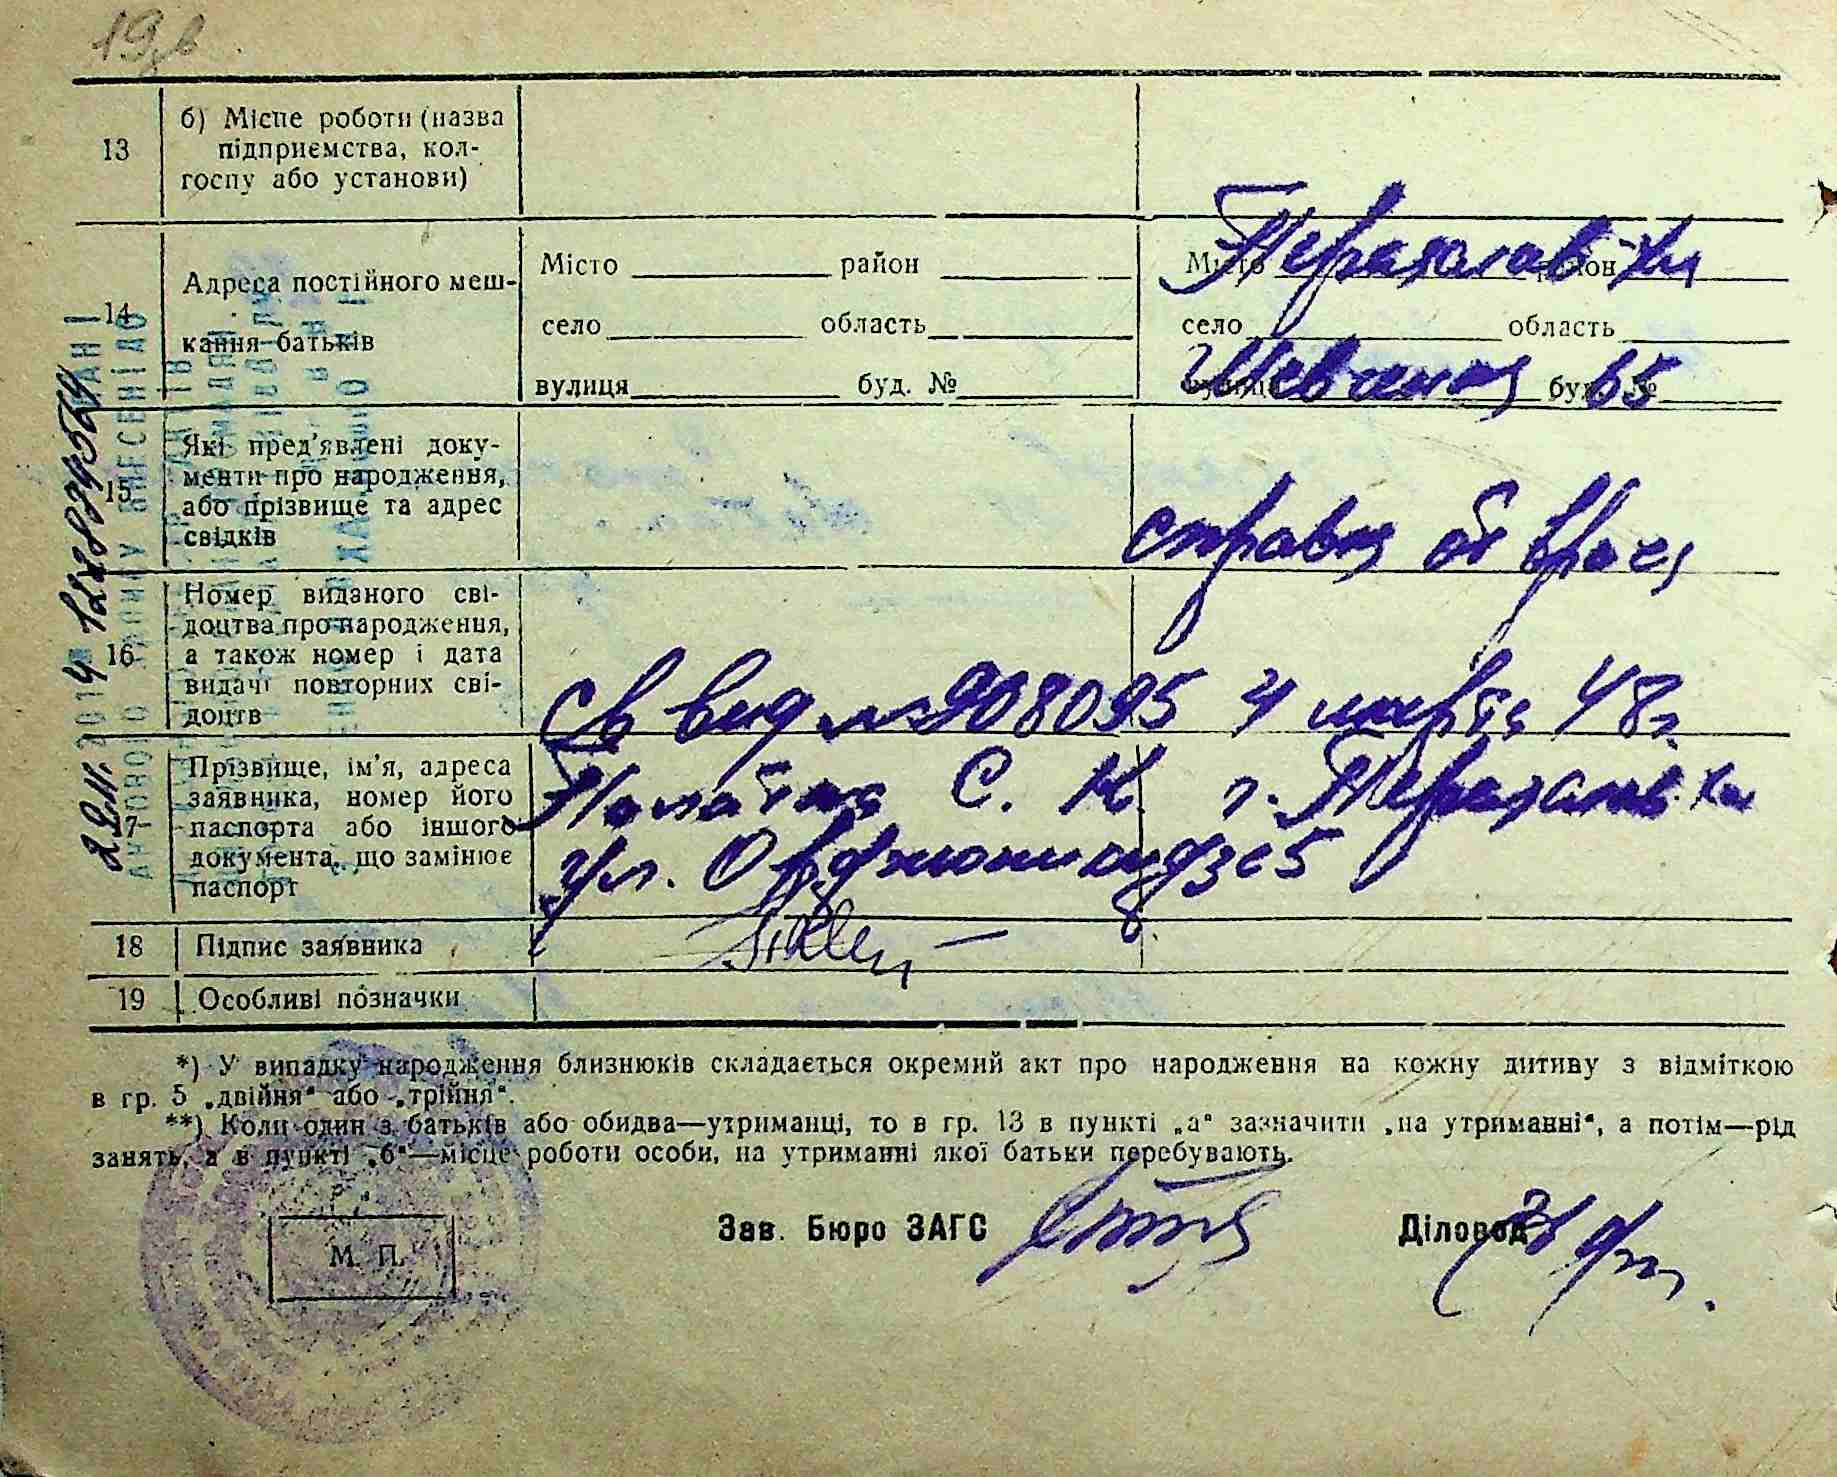 13
б) Місце роботи (назва
підприємства, кол-
госпу або установи)
14
Адреса постійного меш-
кання батьків
Місто район
село область
вулиця буд. №
Місто район Переяслав-Хм
село область
вулиця Шевченка буд. № 65
15
Які пред’явлені доку-
менти про народження,
або прізвище та адрес
свідків
справка от врача
16
Номер виданого сві-
доцтва про народження,
а також номер і дата
видачі повторних сві-
доцтв
св выд № 908095 4 марта 48 г.
17
Прізвище, ім’я, адреса
заявника, номер його
паспорта або іншого
документа, що замінює
паспорт
С. К. г. Переяслав. Хм
ул. Орджоникидзе 5
18 Підпис заявника
19 Особливі позначки
*) У випадку народження близнюків складається окремий акт про народження на кожну дитину з відміткою
в гр. 5 „двійня“ або „трійня“.
**) Коли один з батьків або обидва—утриманці, то в гр. 13 в пункті „а“ зазначити „на утриманні“, а потім—рід
занять, а в пункті „б“—місце роботи особи, на утриманні якої батьки перебувають.
М. П.
Зав. Бюро ЗАГС
Діловод